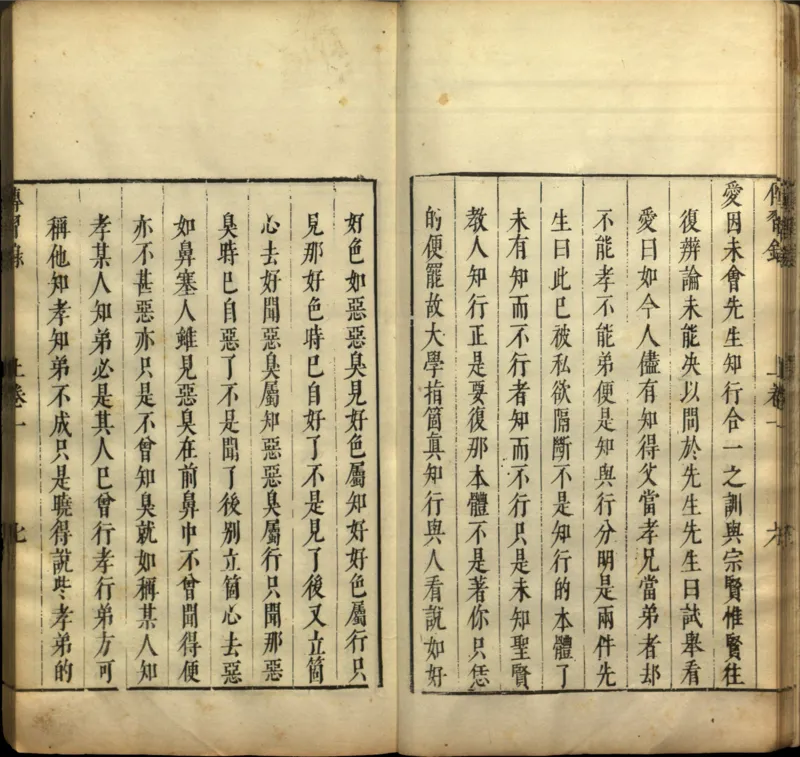 傳習錄 上卷一 六
愛因未會先生知行合一之訓與宗賢惟賢徃
復辨論未能决以問於先生先生曰試舉看
愛曰如今人儘有知得父當孝兄當弟者却
不能孝不能弟便是知與行分明是兩件先
生曰此已被私欲隔斷不是知行的本體了
未有知而不行者知而不行只是未知聖賢
教人知行正是要復那本體不是著你只恁
的便罷故大學指箇真知行與人看說如好
好色如惡惡臭見好色屬知好好色屬行只
見那好色時已自好了不是見了後又立箇
心去好聞惡臭屬知惡惡臭屬行只聞那惡
臭時已自惡了不是聞了後别立箇心去惡
如鼻塞人雖見惡臭在前鼻中不曾聞得便
亦不甚惡亦只是不曾知臭就如稱某人知
孝某人知弟必是其人已曾行孝行弟方可
稱他知孝知弟不成只是曉得說些孝弟的
傳習錄 上卷一